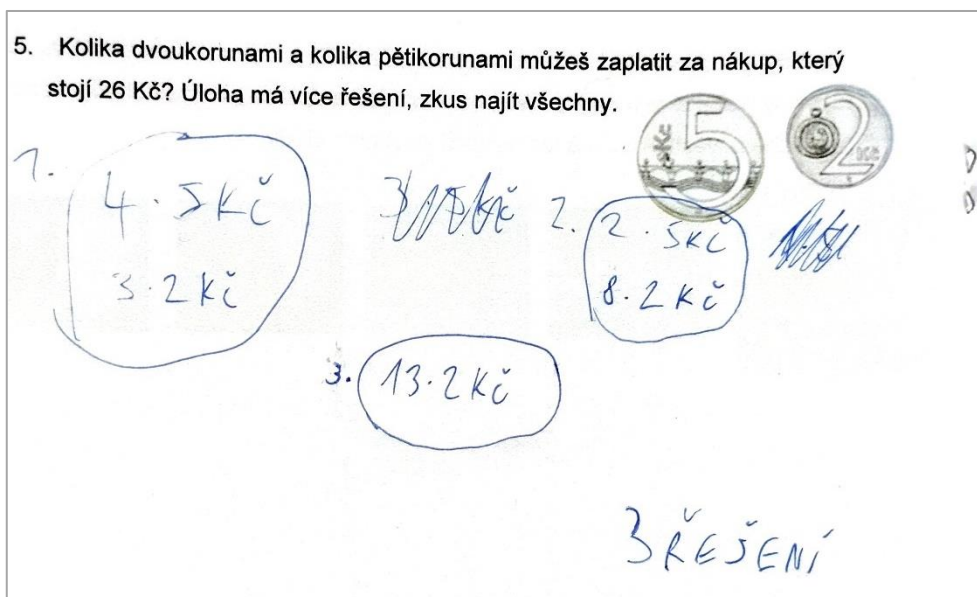 5. Kolika dvoukorunami a kolika pětikorunami můžeš zaplatit za nákup, který
stojí 26 Kč? Úloha má více řešení, zkus najít všechny.
1.
4 · 5 Kč
3 · 2 Kč
2.
2 · 5 Kč
8 · 2 Kč
3. 13 · 2 Kč
3 ŘEŠENÍ